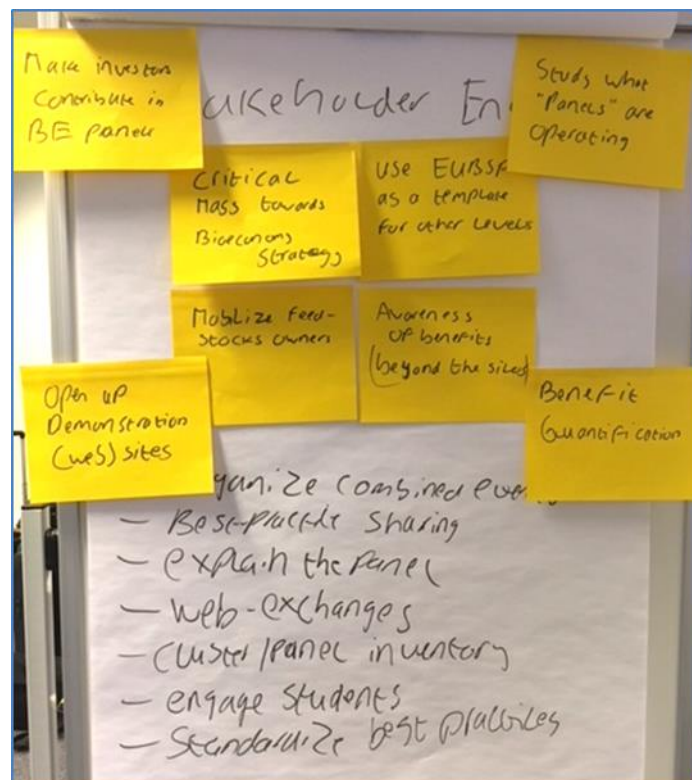 Make investors
Contribute in
BE panel
akeholder En
Study what
"Panels" are
operating
Critical
Mass towards
Bioeconomy
Strategy
Use EUBSP
as a template
for other levels
Mobilize feed-
stocks owners
Awareness
of benefits
(beyond the sites)
Open up
Demonstration
(web) sites
Benefit
Quantification
ganize combined even
— Best-practice sharing
— explain the panel
— web-exchanges
— cluster/panel inventory
— engage students
— Standardize best practices